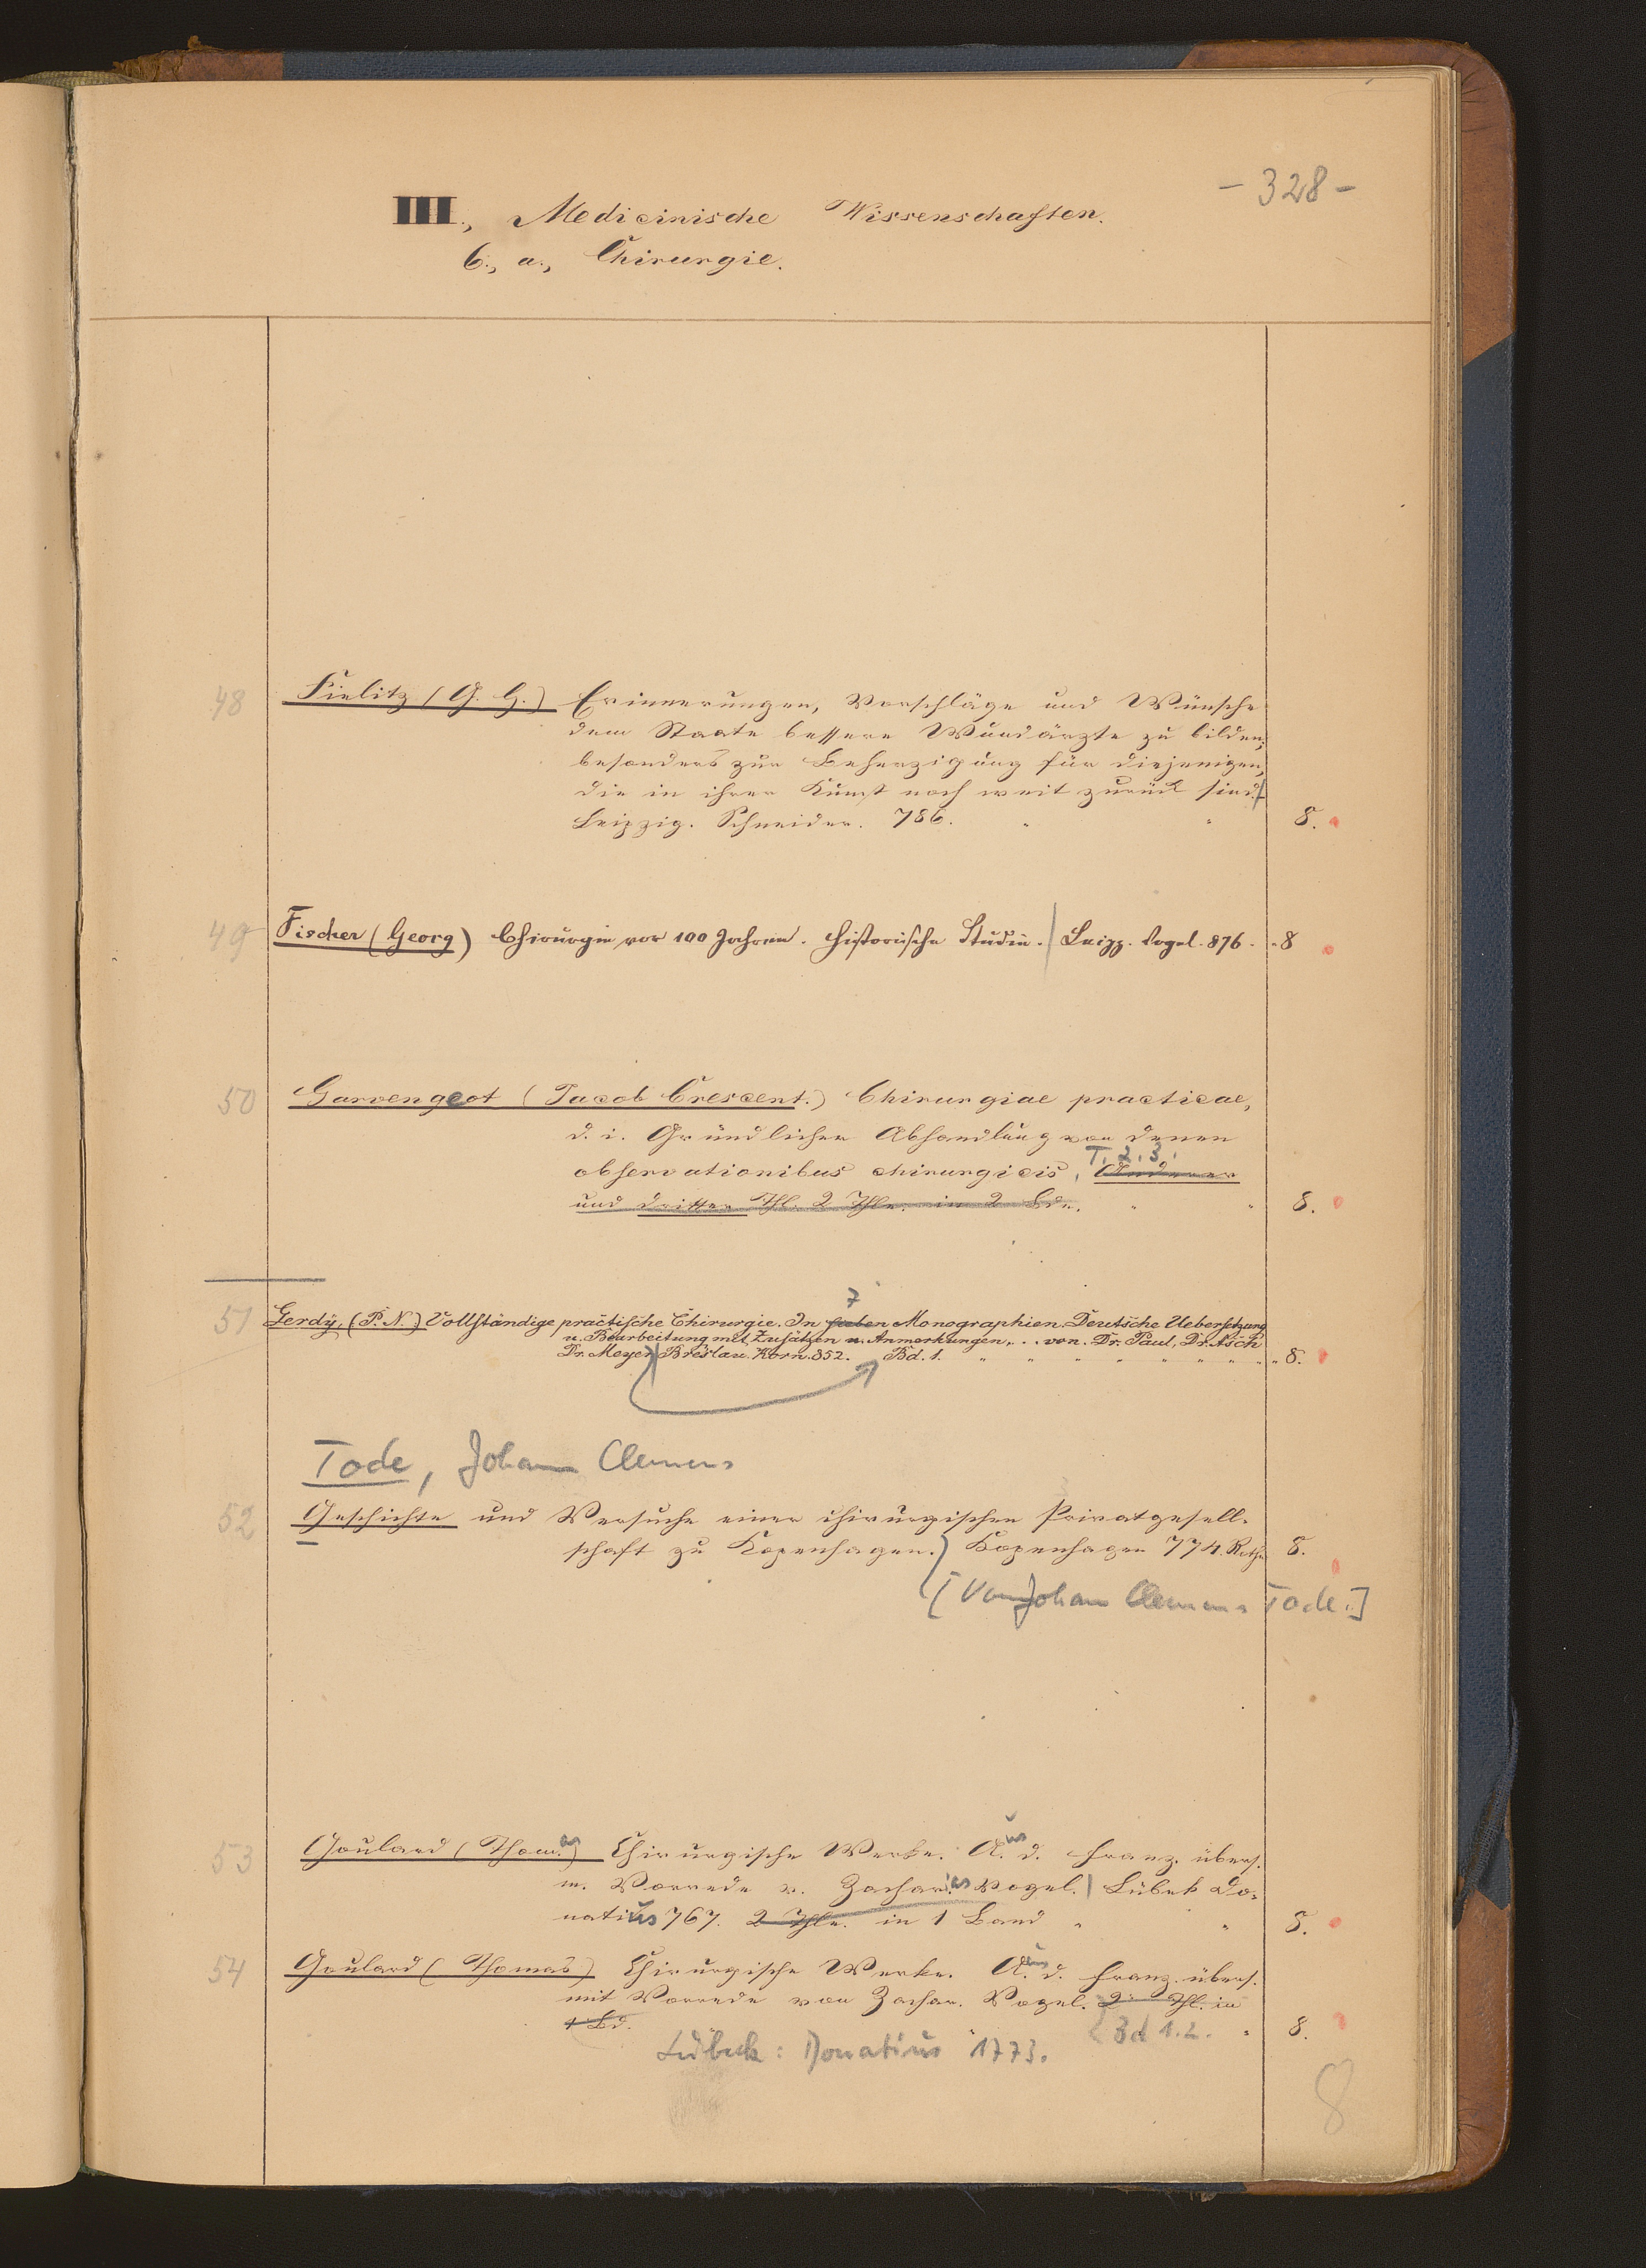 - 328 -
III., Medicinische Wissenschaften.
6., a., Chirurgie.
48 Fielitz (G. H.) Erinnerungen, Vorschläge und Wünsche
dem Staate bessere Wundärzte zu bilden;
besonders zur Beherzigung für diejenigen,
die in ihrer Kunst noch weit zurück sind.
Leipzig. Schneider. 786. " " 8.
49 Fischer (Georg) Chirurgie vor 100 Jahren. Historische Studie. Leipz. Vogel. 876. 8
50 Garvengeot (Jacob Crescent.) Chirurgiae practicae,
d. i. Gründlicher Abhandlung von denen
T. 2. 3.
observationibus chirurgicis, Anderer
und dritter Thl. 2 Thle. in 2 Bdn. " " 8.
7
51 Gerdy, (P. N.) Vollständige practische Chirurgie. In sieben Monographien. Deutsche Uebersetzung
u. Bearbeitung mit Zusätzen u. Anmerkungen,... von. Dr. Paul, Dr. Asch
Dr. Meyer Breslau. Korn. 852. Bd. 1. " " " " " " " " " 8.
Tode, Johann Clemens
52 Geschichte und Versuche einer chirurgischen Privatgesell-
schaft zu Kopenhagen. Kopenhagen 774. Rothe 8.
[Von Johann Clemens Tode.]
53 Goulard (Thomas) Chirurgische Werke. Aus d. Franz. übers.
m. Vorrede v. Zacharias Vogel. Lübek Do-
natius 767. 2 Thle. in 1 Band " " 8.
54 Goulard (Thomas) Chirurgische Werke. Aus d. Franz. übers.
mit Vorrede von Zachar. Vogel. 2 Thl. in
1 Bd. Bd 1. 2. " 8.
Lübeck: Donatius 1773.
8